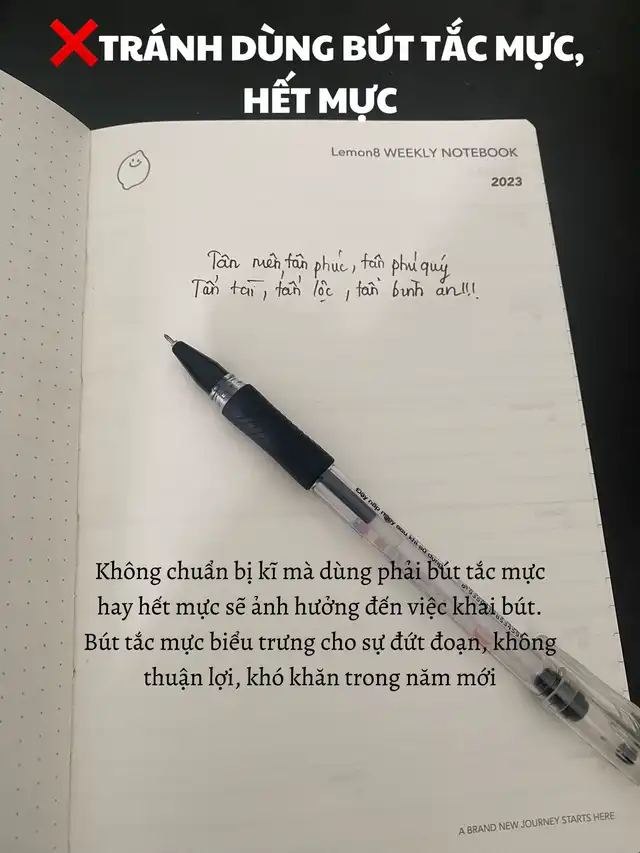 ❌TRÁNH DÙNG BÚT TẮC MỰC,
HẾT MỰC
Lemon8 WEEKLY NOTEBOOK
2023
Tân niên, tấn phúc, tấn phú quý
Tấn tài, tấn lộc, tấn bình an!!!
Đậy nắp ngay sau khi sử dụng
Không chuẩn bị kĩ mà dùng phải bút tắc mực
hay hết mực sẽ ảnh hưởng đến việc khai bút.
Bút tắc mực biểu trưng cho sự đứt đoạn, không
thuận lợi, khó khăn trong năm mới
A BRAND NEW JOURNEY STARTS HERE